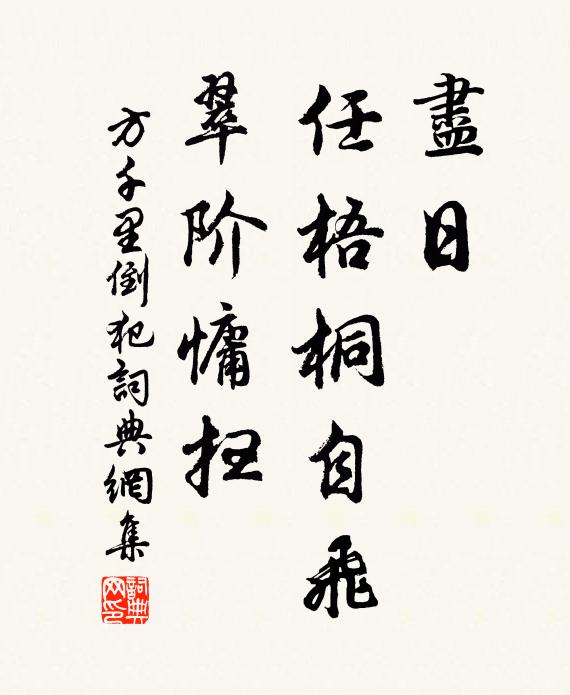 盡日
任梧桐自飛
翠阶慵扫
方千里倒犯詞典網集
詞典網印